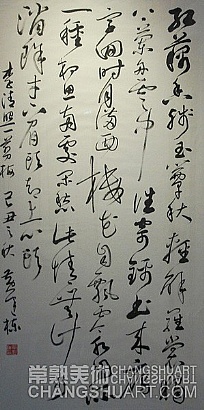 红藕香残玉簟秋轻解罗裳独
上兰舟云中谁寄锦书来雁
字回时月满西楼花自飘零水自流
一种相思两处闲愁此情无计
消除才下眉头却上心头
李清照一剪梅 己丑之秋 黄 栋
常熟美術